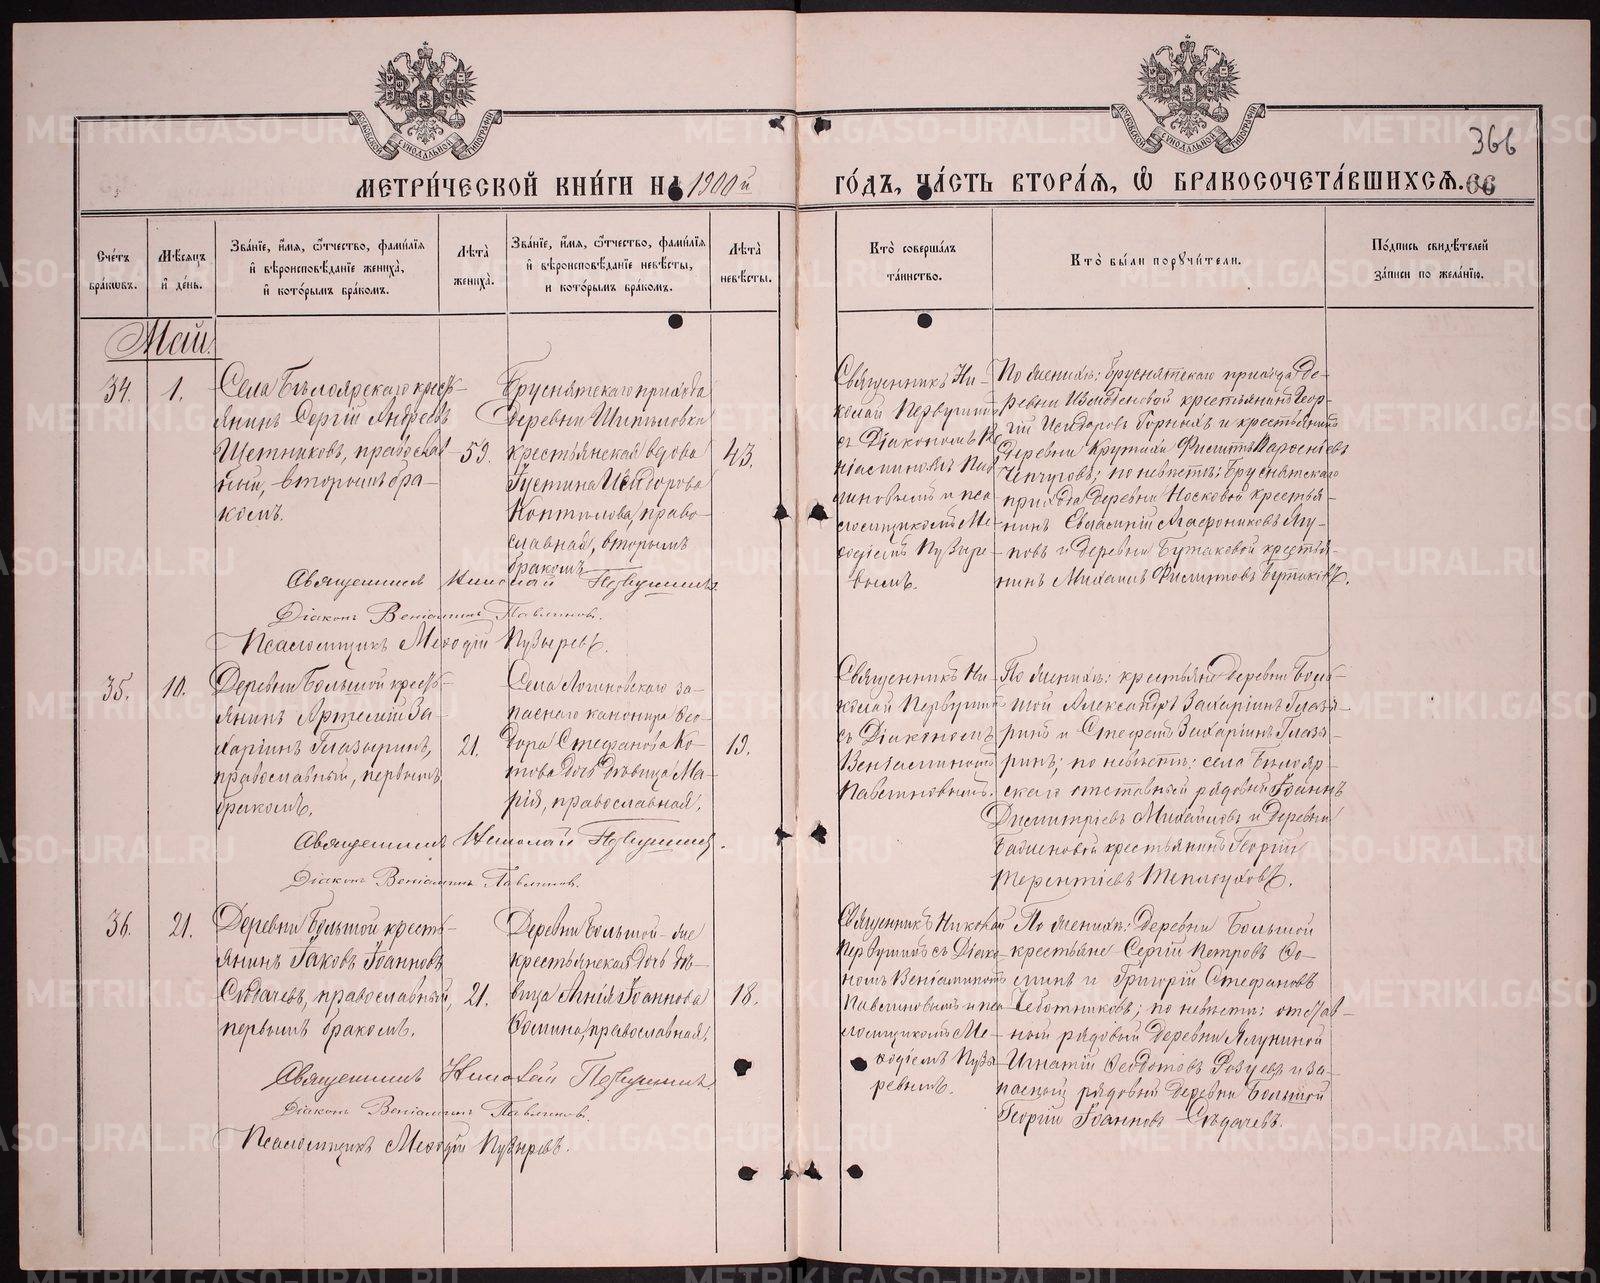 МОСКОВСКОЙ СѴНОДАЛЬНОЙ ТИПОГРАФІИ
МОСКОВСКОЙ СѴНОДАЛЬНОЙ ТИПОГРАФІИ
366
МЕТРИ́ЧЕСКОЙ КНИ́ГИ НА 1900й
ГО́ДЪ, ЧА́СТЬ ВТОРА́Я, Ѽ БРАКОСОЧЕТА́ВШИХСЯ. 66
Сче́тъ бра́кѡвъ.
Мѣ́сяцъ и҆ де́нь.
Зва́нїе, и҆́мя, ѻ҆́тчество, фами́лїя и҆ вѣроисповѣ́данїе жениха̀, и҆ кото́рымъ бра́комъ.
Лѣ́та жениха̀.
Зва́нїе, и҆́мя, ѻ҆́тчество, фами́лїя и҆ вѣроисповѣ́данїе невѣ́сты, и кото́рымъ бра́комъ.
Лѣ́та невѣ́сты.
Кто̀ соверша́лъ та́инство.
Кто̀ бы́ли порꙋчи́тели.
По́дпись свидѣ́телей за́писи по жела́нїю.
Май.
34.
1.
Села Бѣлоярскаго кресть-
янинъ Сергій Андреевъ
Щетниковъ, православ-
ный, вторымъ бра-
комъ.
59.
Бруснятскаго прихода
деревни Шипиловки
крестьянская вдова
Іустина Исидорова
Коптилова, право-
славная, вторымъ
бракомъ
43.
Священникъ Ни-
колай Первушинъ
съ Діакономъ Ве-
ніаминомъ Пав-
линовымъ и пса-
ломщикомъ Ме-
ѳодіемъ Пузыре-
вымъ.
По женихѣ: Бруснятскаго прихода де-
ревни Измоденовой крестьянинъ Геор-
гій Исидоровъ Горныхъ и крестьянинъ
деревни Крутихи Филиппъ
Чепчуговъ; по невѣстѣ: Бруснятскаго
прихода деревни Носковой крестья-
нинъ Евлампій Агаѳониковъ Ягу-
повъ и деревни Бутаковой крестья-
нинъ Михаилъ Филипповъ Бутаковъ.
Священникъ Николай Первушинъ.
Діаконъ Веніаминъ Павлиновъ.
Псаломщикъ Меѳодій Пузыревъ.
35.
10.
Деревни Большой кресть-
янинъ Артемій За-
харіинъ Глазыринъ,
православный, первымъ
бракомъ.
21.
Села Логиновскаго за-
паснаго канонира Ѳео-
дора Стефанова Ко-
това дочь дѣвица Ма-
рія, православная.
19.
Священникъ Ни-
колай Первушинъ
съ Діакономъ
Веніаминомъ
Павлиновымъ.
По женихѣ: крестьяне деревни Боль-
шой Александръ Захаріинъ Глазы-
ринъ и Стефанъ Захаріинъ Глазы-
ринъ; по невѣстѣ: села Бѣлояр-
скаго отставной рядовой Іоаннъ
Димитріевъ Михайловъ и деревни
крестьянинъ Георгій
Терентіевъ Теплоуховъ.
Священникъ Николай Первушинъ.
Діаконъ Веніаминъ Павлиновъ.
36.
21.
Деревни Большой кресть-
янинъ Іаковъ Іоанновъ
Сѣдачевъ, православный,
первымъ бракомъ.
21.
Деревни Большой-же
крестьянская дочь дѣ-
вица Анія Іоаннова
Ѳомина, православная.
18.
Священникъ Николай
Первушинъ съ Діако-
номъ Веніаминомъ
Павлиновымъ и пса-
ломщикомъ Ме-
ѳодіемъ Пузы-
ревымъ.
По женихѣ: деревни Большой
крестьяне Сергій Петровъ Ѳо-
минъ и Григорій Стефановъ
Чеботниковъ; по невѣстѣ: отстав-
ный рядовый деревни Ялуниной
Игнатій Ѳеодотовъ и за-
пасный рядовый деревни Большой
Георгій Іоанновъ Сѣдачевъ.
Священникъ Николай Первушинъ
Діаконъ Веніаминъ Павлиновъ.
Псаломщикъ Меѳодій Пузыревъ.
METRIKI.GASO-URAL.RU